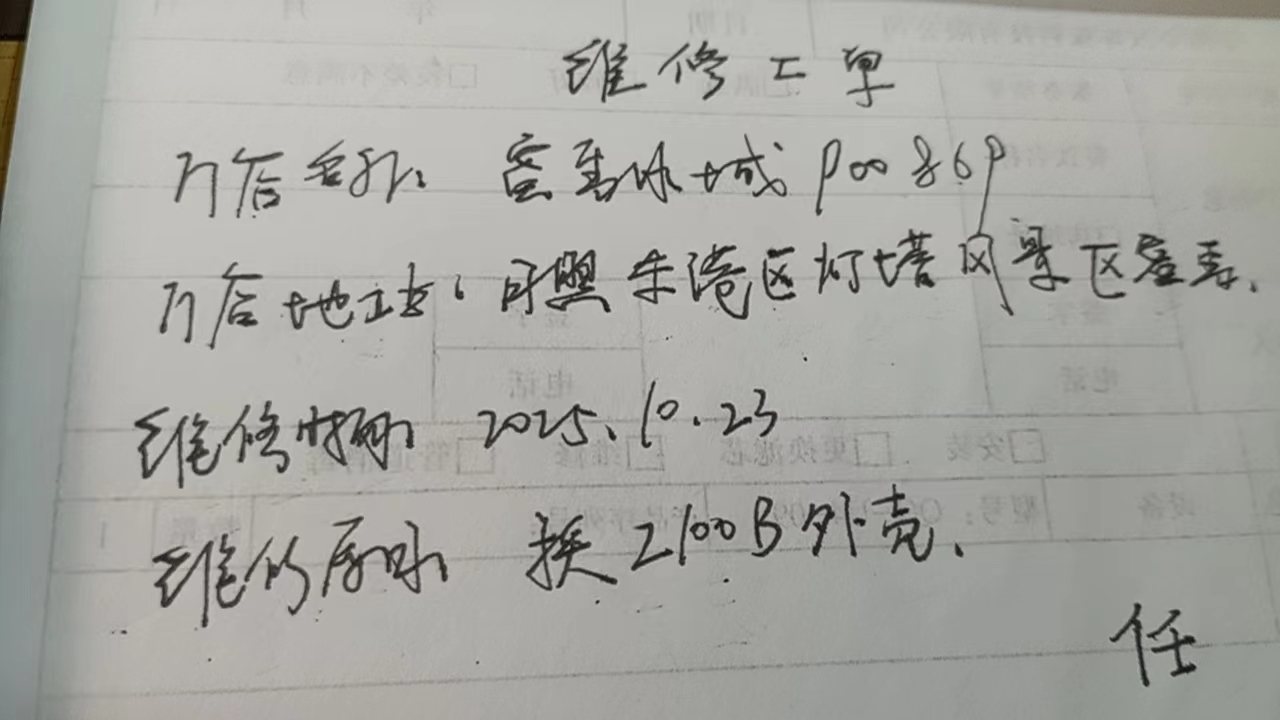 维修工单
门店名称: 蜜雪冰城 P00869
门店地址: 日照东港区灯塔风景区蜜雪.
维修时期: 2025.10.23
维修原因: 换2100B外壳.
任